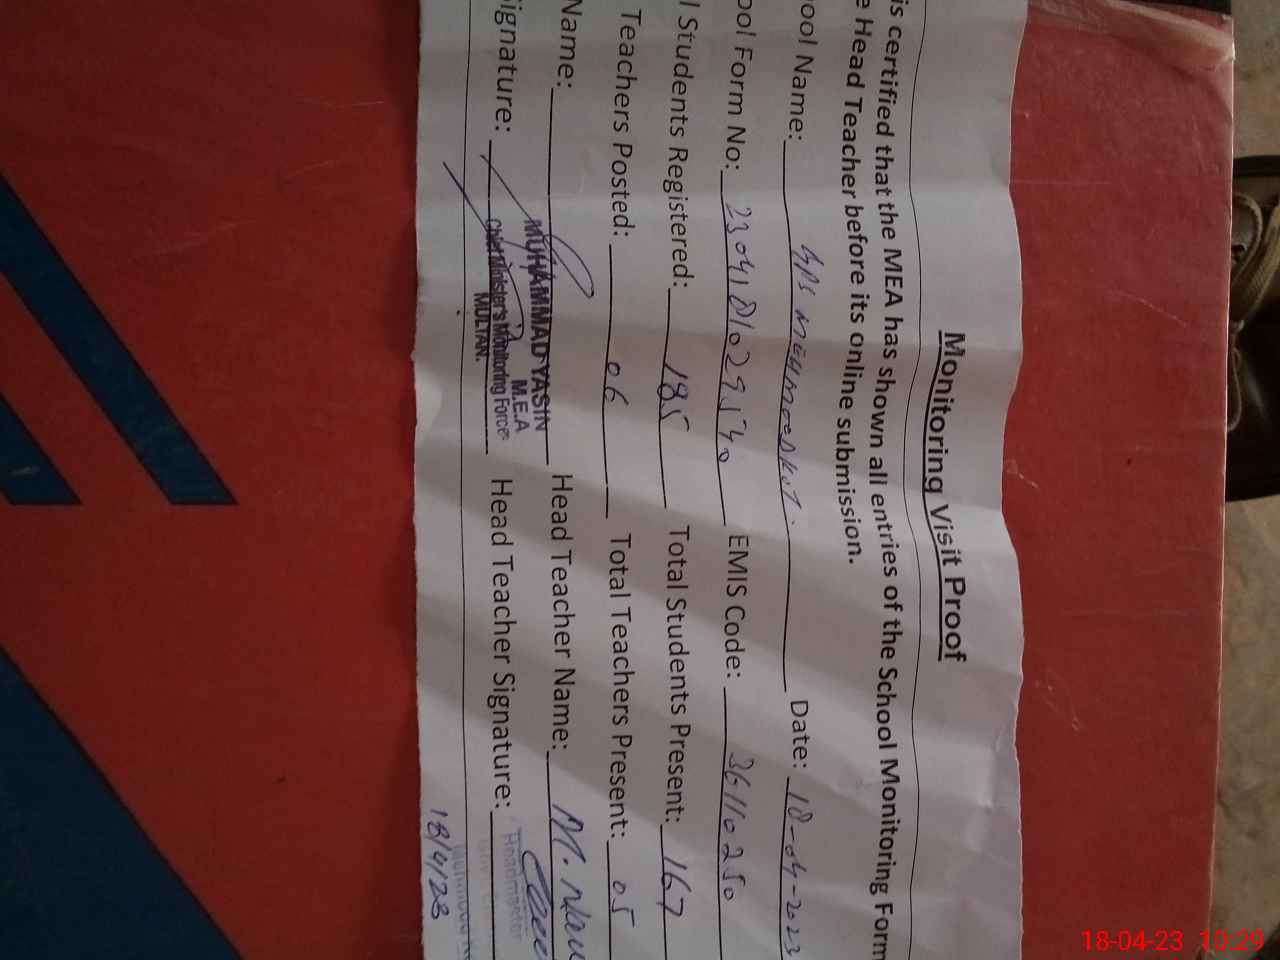 Monitoring Visit Proof
is certified that the MEA has shown all entries of the School Monitoring Form
e Head Teacher before its online submission.
ool Name: GPS Mehmood Kot. Date: 18-04-2023
ool Form No: 2304181029540 EMIS Code: 36110250
l Students Registered: 185 Total Students Present: 167
Teachers Posted: 06 Total Teachers Present: 05
Name: MUHAMMAD YASIN Head Teacher Name: M.
M.E.A
ignature: Chief Minister's Monitoring Force Head Teacher Signature:
MULTAN.
Headmaster
18/4/23
18-04-23 10:29